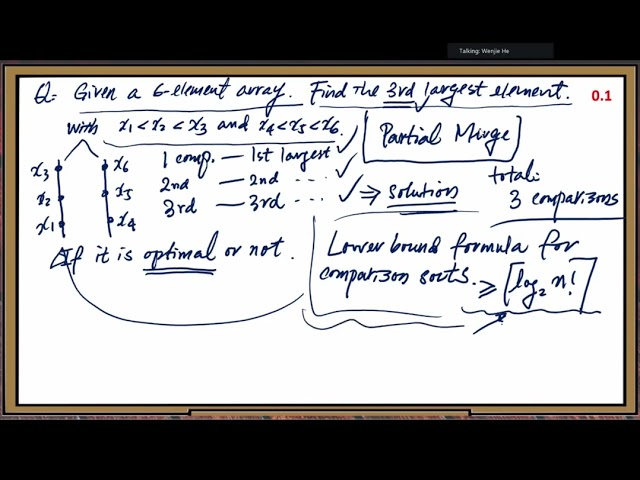 Talking: Wenjie He
Q: Given a 6-element array. Find the 3rd largest element.
0.1
with x₁<x₂<x₃ and x₄<x₅<x₆.
[Partial Mirge]
x₃ x₆ 1 comp. — 1st largest ✓
x₂ x₅ 2nd — 2nd ... ✓
x₁ x₄ 3rd — 3rd ... ✓ ⇒ solution
total:
3 comparisons
If it is optimal or not.
Lower bound formula for
comparison sorts. ≥ ⌈log₂ n!⌉